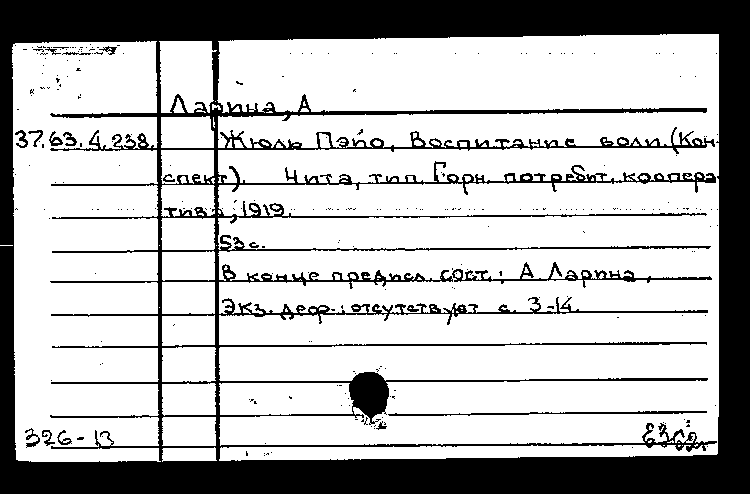 Ларина, А.
37.63.4.238. Жюль Пэйо, Воспитание воли. (Кон-
спект). Чита, тип. Горн. потребит. коопера-
тива, 1919.
53 с.
В конце предисл. сост.: А Ларина.
Экз. деф.: отсутствуют с. 3-14.
326-13